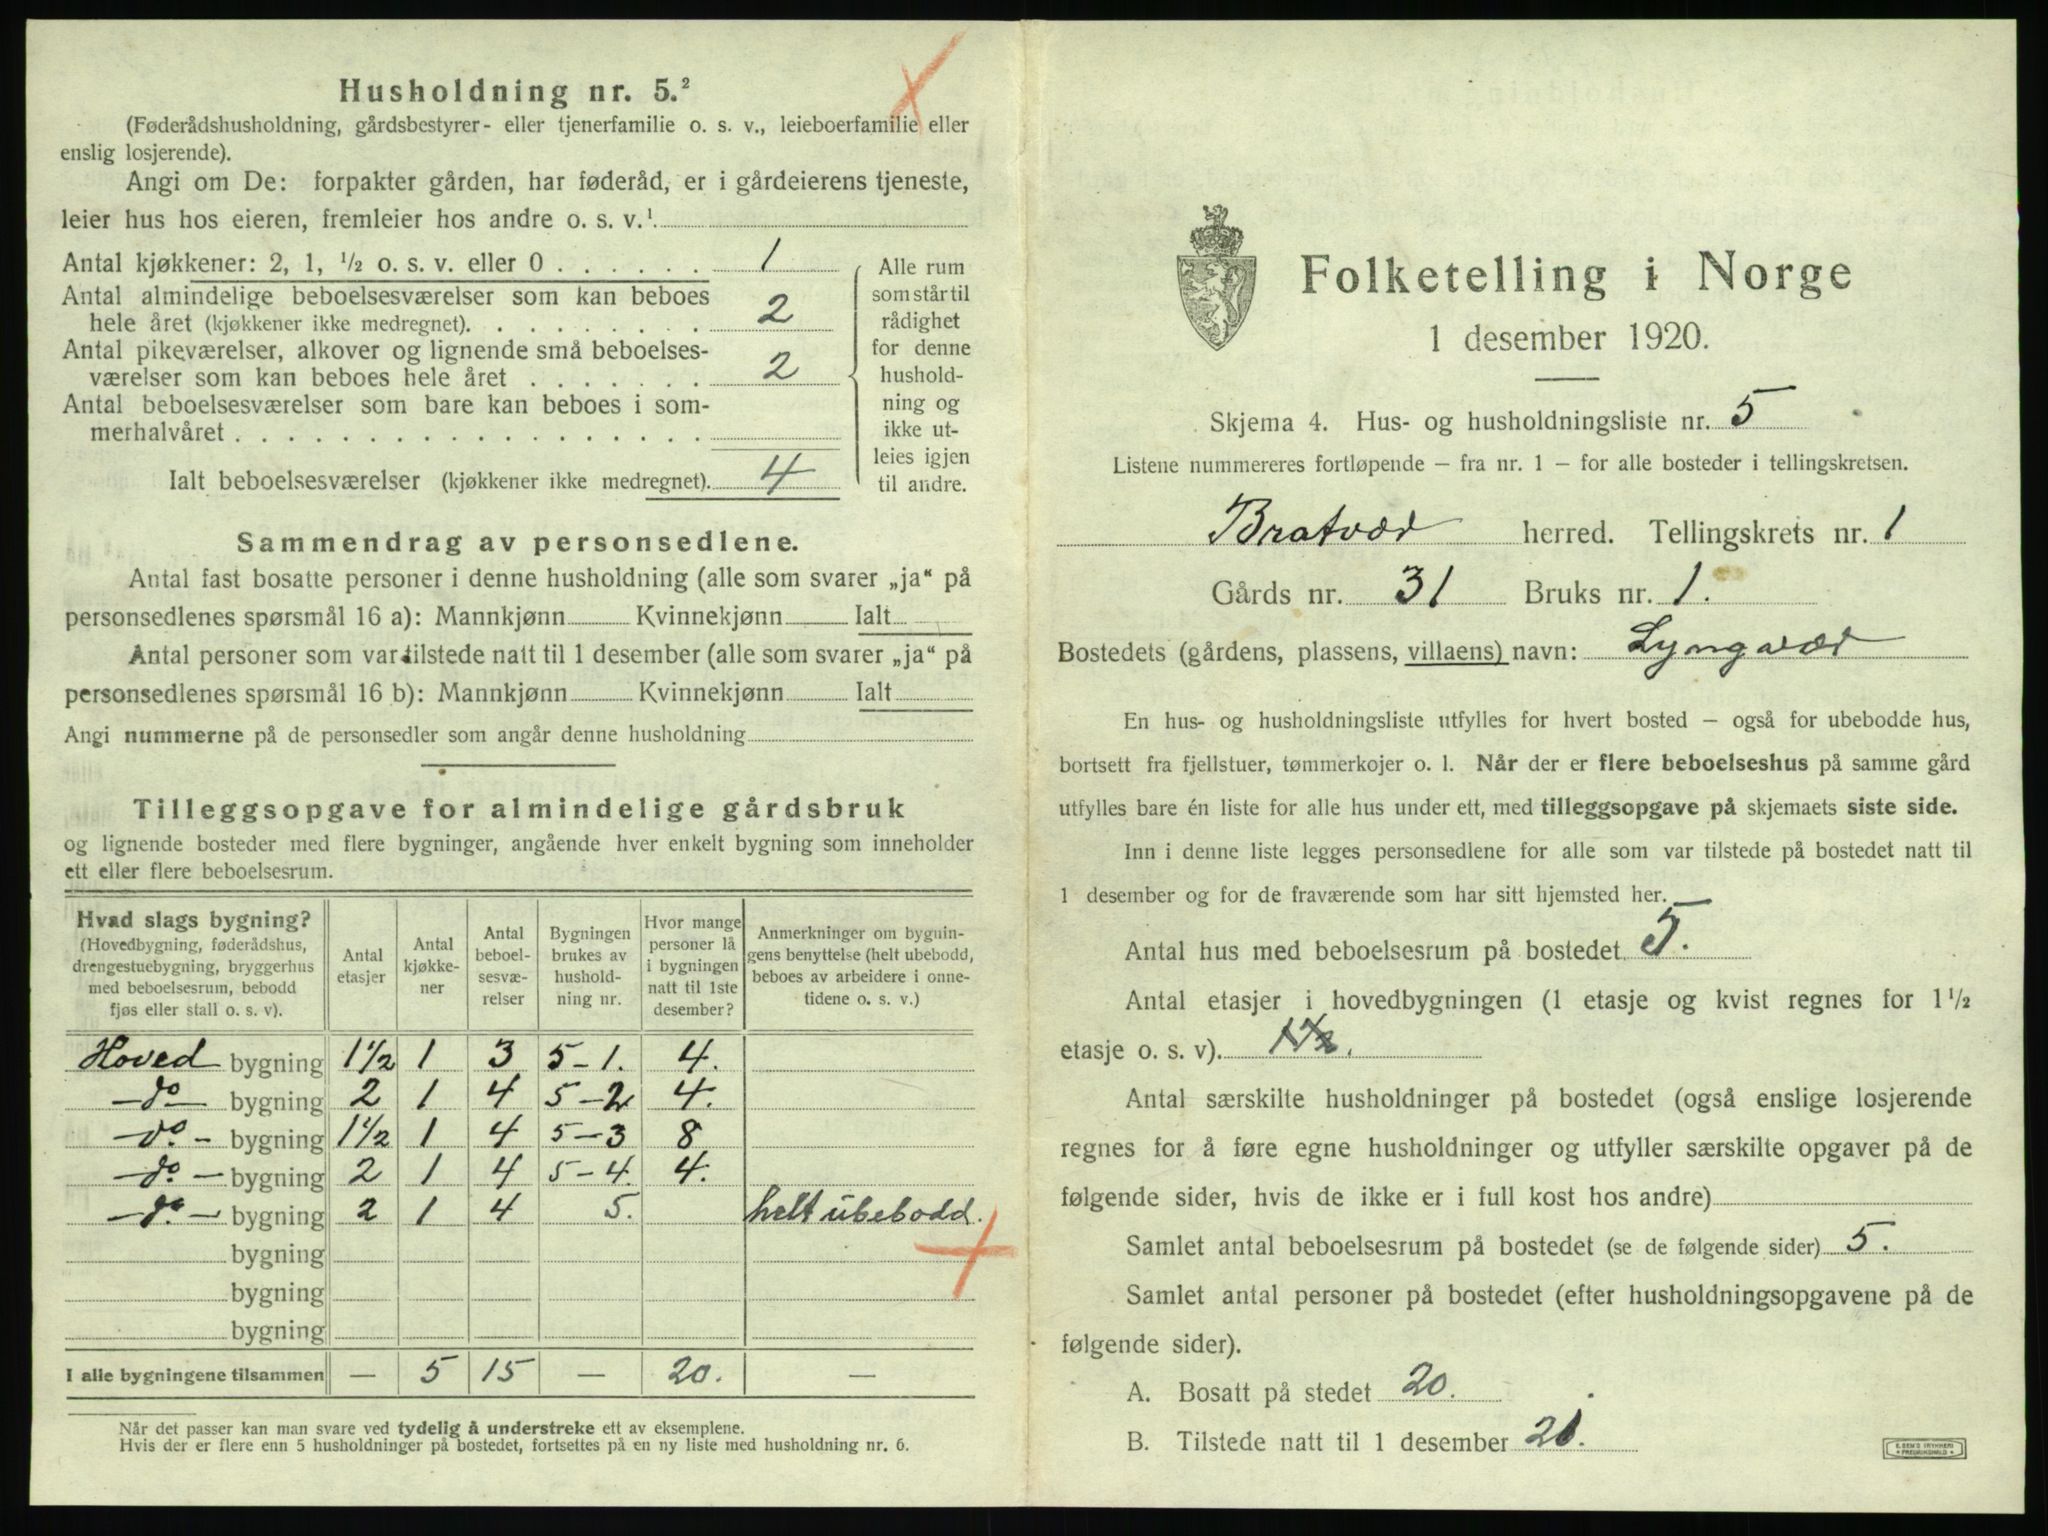 Husholdning nr. 5.²
(Føderådshusholdning, gårdsbestyrer- eller tjenerfamilie o. s. v., leieboerfamilie eller
enslig losjerende).
Angi om De: forpakter gården, har føderåd, er i gårdeierens tjeneste,
leier hus hos eieren, fremleier hos andre o. s. v.¹
Antal kjøkkener: 2, 1, ½ o. s. v. eller 0 . . . . . . 1
Antal almindelige beboelsesværelser som kan beboes
hele året (kjøkkener ikke medregnet). . . . . . . . . 2
Antal pikeværelser, alkover og lignende små beboelses-
værelser som kan beboes hele året . . . . . . . 2
Antal beboelsesværelser som bare kan beboes i som-
merhalvåret . . . . . . . . . . . . . . . . . .
Ialt beboelsesværelser (kjøkkener ikke medregnet). 4
Alle rum
som står til
rådighet
for denne
hushold-
ning og
ikke ut-
leies igjen
til andre.
Sammendrag av personsedlene.
Antal fast bosatte personer i denne husholdning (alle som svarer „ja“ på
personsedlenes spørsmål 16 a): Mannkjønn Kvinnekjønn Ialt
Antal personer som var tilstede natt til 1 desember (alle som svarer „ja“ på
personsedlenes spørsmål 16 b): Mannkjønn Kvinnekjønn Ialt
Angi nummerne på de personsedler som angår denne husholdning
Tilleggsopgave for almindelige gårdsbruk
og lignende bosteder med flere bygninger, angående hver enkelt bygning som inneholder
ett eller flere beboelsesrum.
Hvad slags bygning?
(Hovedbygning, føderådshus,
drengestuebygning, bryggerhus
med beboelsesrum, bebodd
fjøs eller stall o. s. v).
Antal
etasjer
Antal
kjøkke-
ner
Antal
beboel-
sesvæ-
relser
Bygningen
brukes av
hushold-
ning nr.
Hvor mange
personer lå
i bygningen
natt til 1ste
desember?
Anmerkninger om bygnin-
gens benyttelse (helt ubebodd,
beboes av arbeidere i onne-
tidene o. s. v.)
Hoved bygning 1½ 1 3 5-1. 4.
-do- bygning 2 1 4 5-2 4.
-do.- bygning 1½ 1 4 5-3 8
-do- bygning 2 1 4 5-4. 4.
-do.- bygning 2 1 4 5. helt ubebodd.
bygning
bygning
bygning
I alle bygningene tilsammen — 5 15 — 20. —
Når det passer kan man svare ved tydelig å understreke ett av eksemplene.
Hvis der er flere enn 5 husholdninger på bostedet, fortsettes på en ny liste med husholdning nr. 6.
Folketelling i Norge
1 desember 1920.
Skjema 4. Hus- og husholdningsliste nr. 5
Listene nummereres fortløpende – fra nr. 1 – for alle bosteder i tellingskretsen.
Bratvær herred. Tellingskrets nr. 1
Gårds nr. 31 Bruks nr. 1.
Bostedets (gårdens, plassens, villaens) navn: Lyngvær
En hus- og husholdningsliste utfylles for hvert bosted – også for ubebodde hus,
bortsett fra fjellstuer, tømmerkojer o. l. Når der er flere beboelseshus på samme gård
utfylles bare én liste for alle hus under ett, med tilleggsopgave på skjemaets siste side.
Inn i denne liste legges personsedlene for alle som var tilstede på bostedet natt til
1 desember og for de fraværende som har sitt hjemsted her.
Antal hus med beboelsesrum på bostedet 5.
Antal etasjer i hovedbygningen (1 etasje og kvist regnes for 1½
etasje o. s. v).
Antal særskilte husholdninger på bostedet (også enslige losjerende
regnes for å føre egne husholdninger og utfyller særskilte opgaver på de
følgende sider, hvis de ikke er i full kost hos andre)
Samlet antal beboelsesrum på bostedet (se de følgende sider) 5.
Samlet antal personer på bostedet (efter husholdningsopgavene på de
følgende sider).
A. Bosatt på stedet 20.
B. Tilstede natt til 1 desember 20.
E. SEM'S TRYKKERI
FREDRIKSHALD